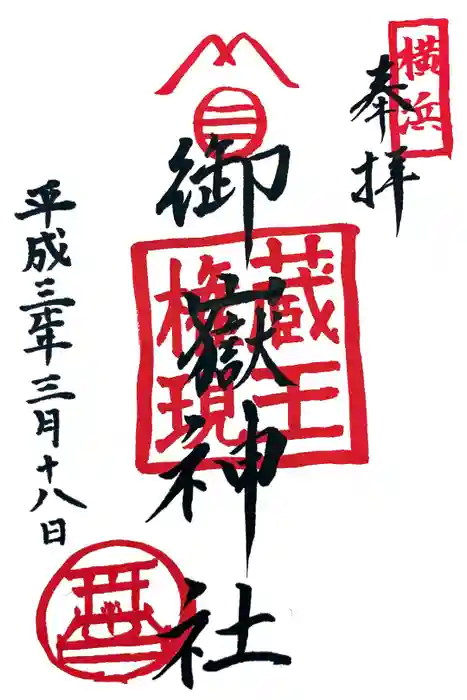 横浜
奉拝
御嶽神社
蔵王
権現
平成三年三月十八日